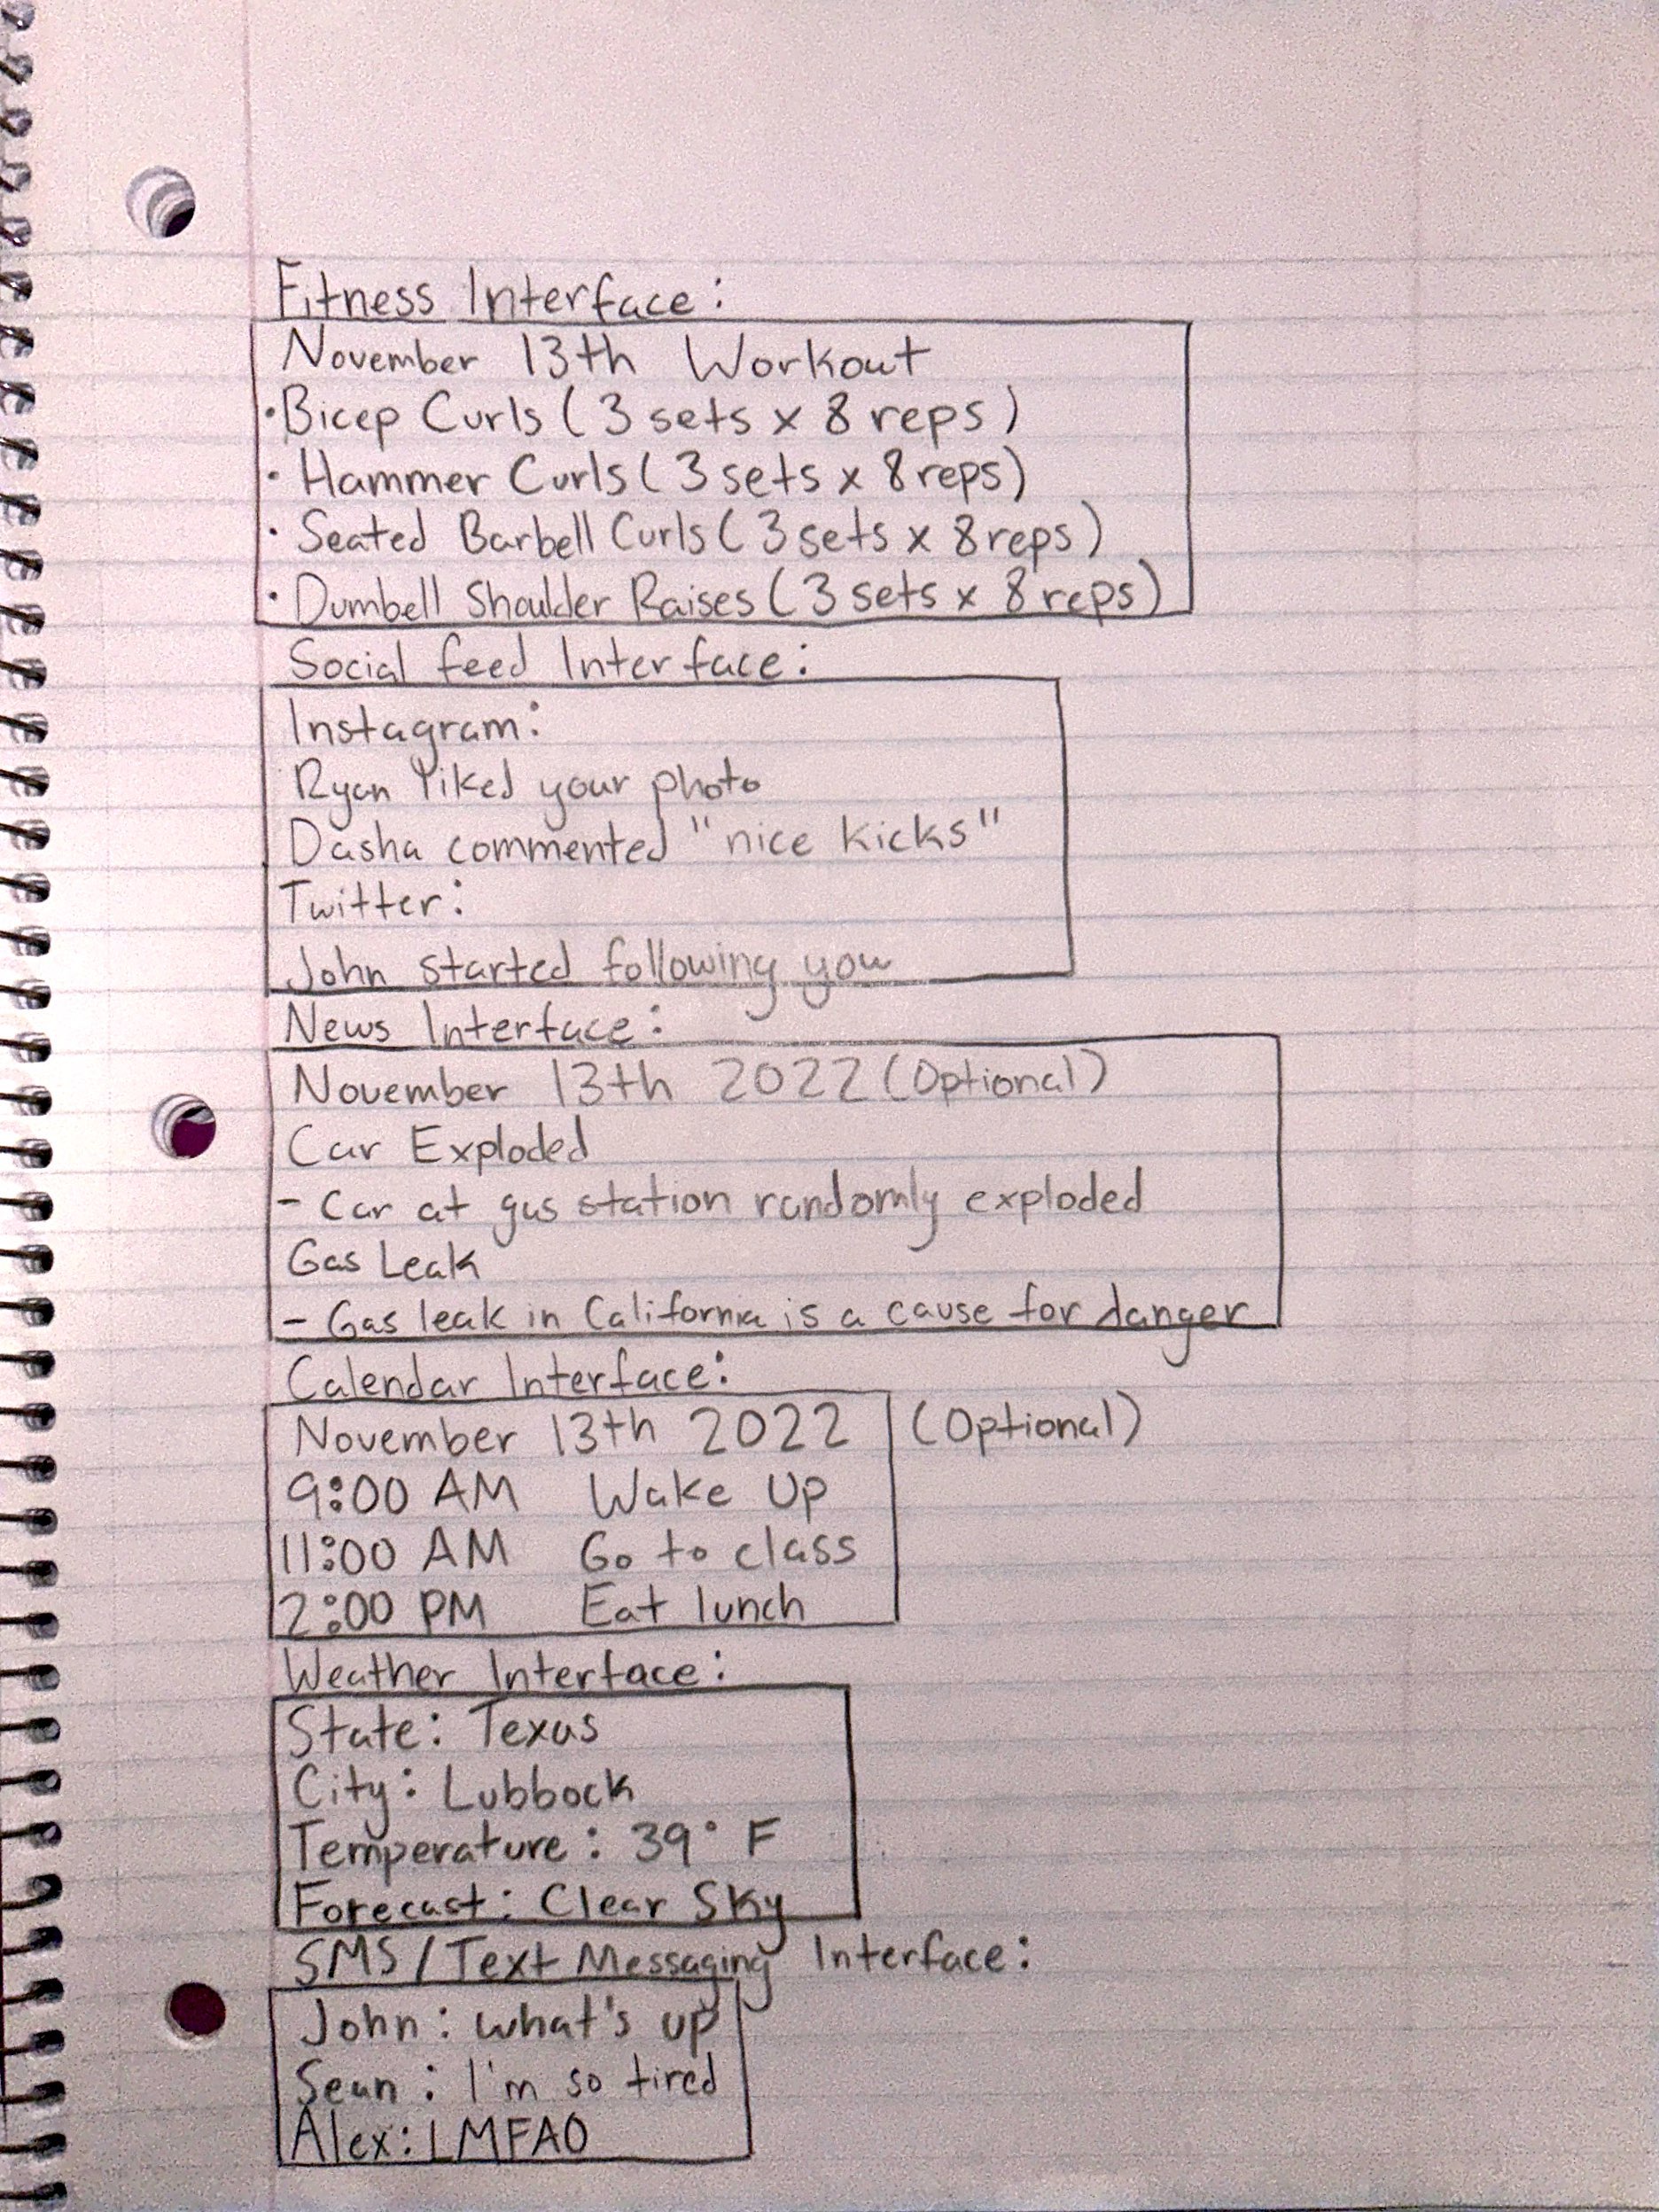 Fitness Interface:
November 13th Workout
•Bicep Curls (3 sets x 8 reps)
• Hammer Curls (3 sets x 8 reps)
• Seated Barbell Curls (3 sets x 8 reps)
• Dumbell Shoulder Raises (3 sets x 8 reps)
Social feed Interface:
Instagram:
Ryan liked your photo
Dasha commented "nice kicks"
Twitter:
John started following you
News Interface:
November 13th 2022 (Optional)
Car Exploded
- Car at gas station randomly exploded
Gas Leak
- Gas leak in California is a cause for danger
Calendar Interface:
November 13th 2022 (Optional)
9:00 AM Wake Up
11:00 AM Go to class
2:00 PM Eat lunch
Weather Interface:
State: Texas
City: Lubbock
Temperature: 39° F
Forecast: Clear Sky
SMS/Text Messaging Interface:
John: what's up
Sean: I'm so tired
Alex: LMFAO